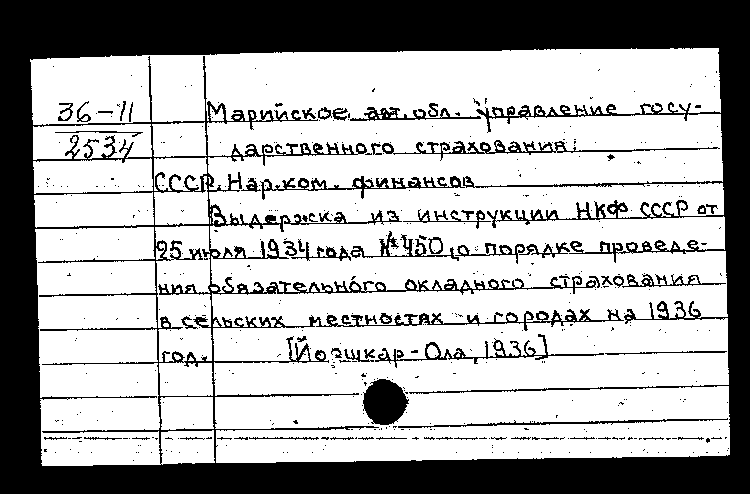 36-11
2534
Марийское авт. обл. управление госу-
дарственного страхования.
СССР. Нар.ком. финансов
Выдержка из инструкции НКФ СССР от
25 июля 1934 года № 450, о порядке проведе-
ния обязательного окладного страхования
в сельских местностях и городах на 1936
год. [Йошкар-Ола, 1936]